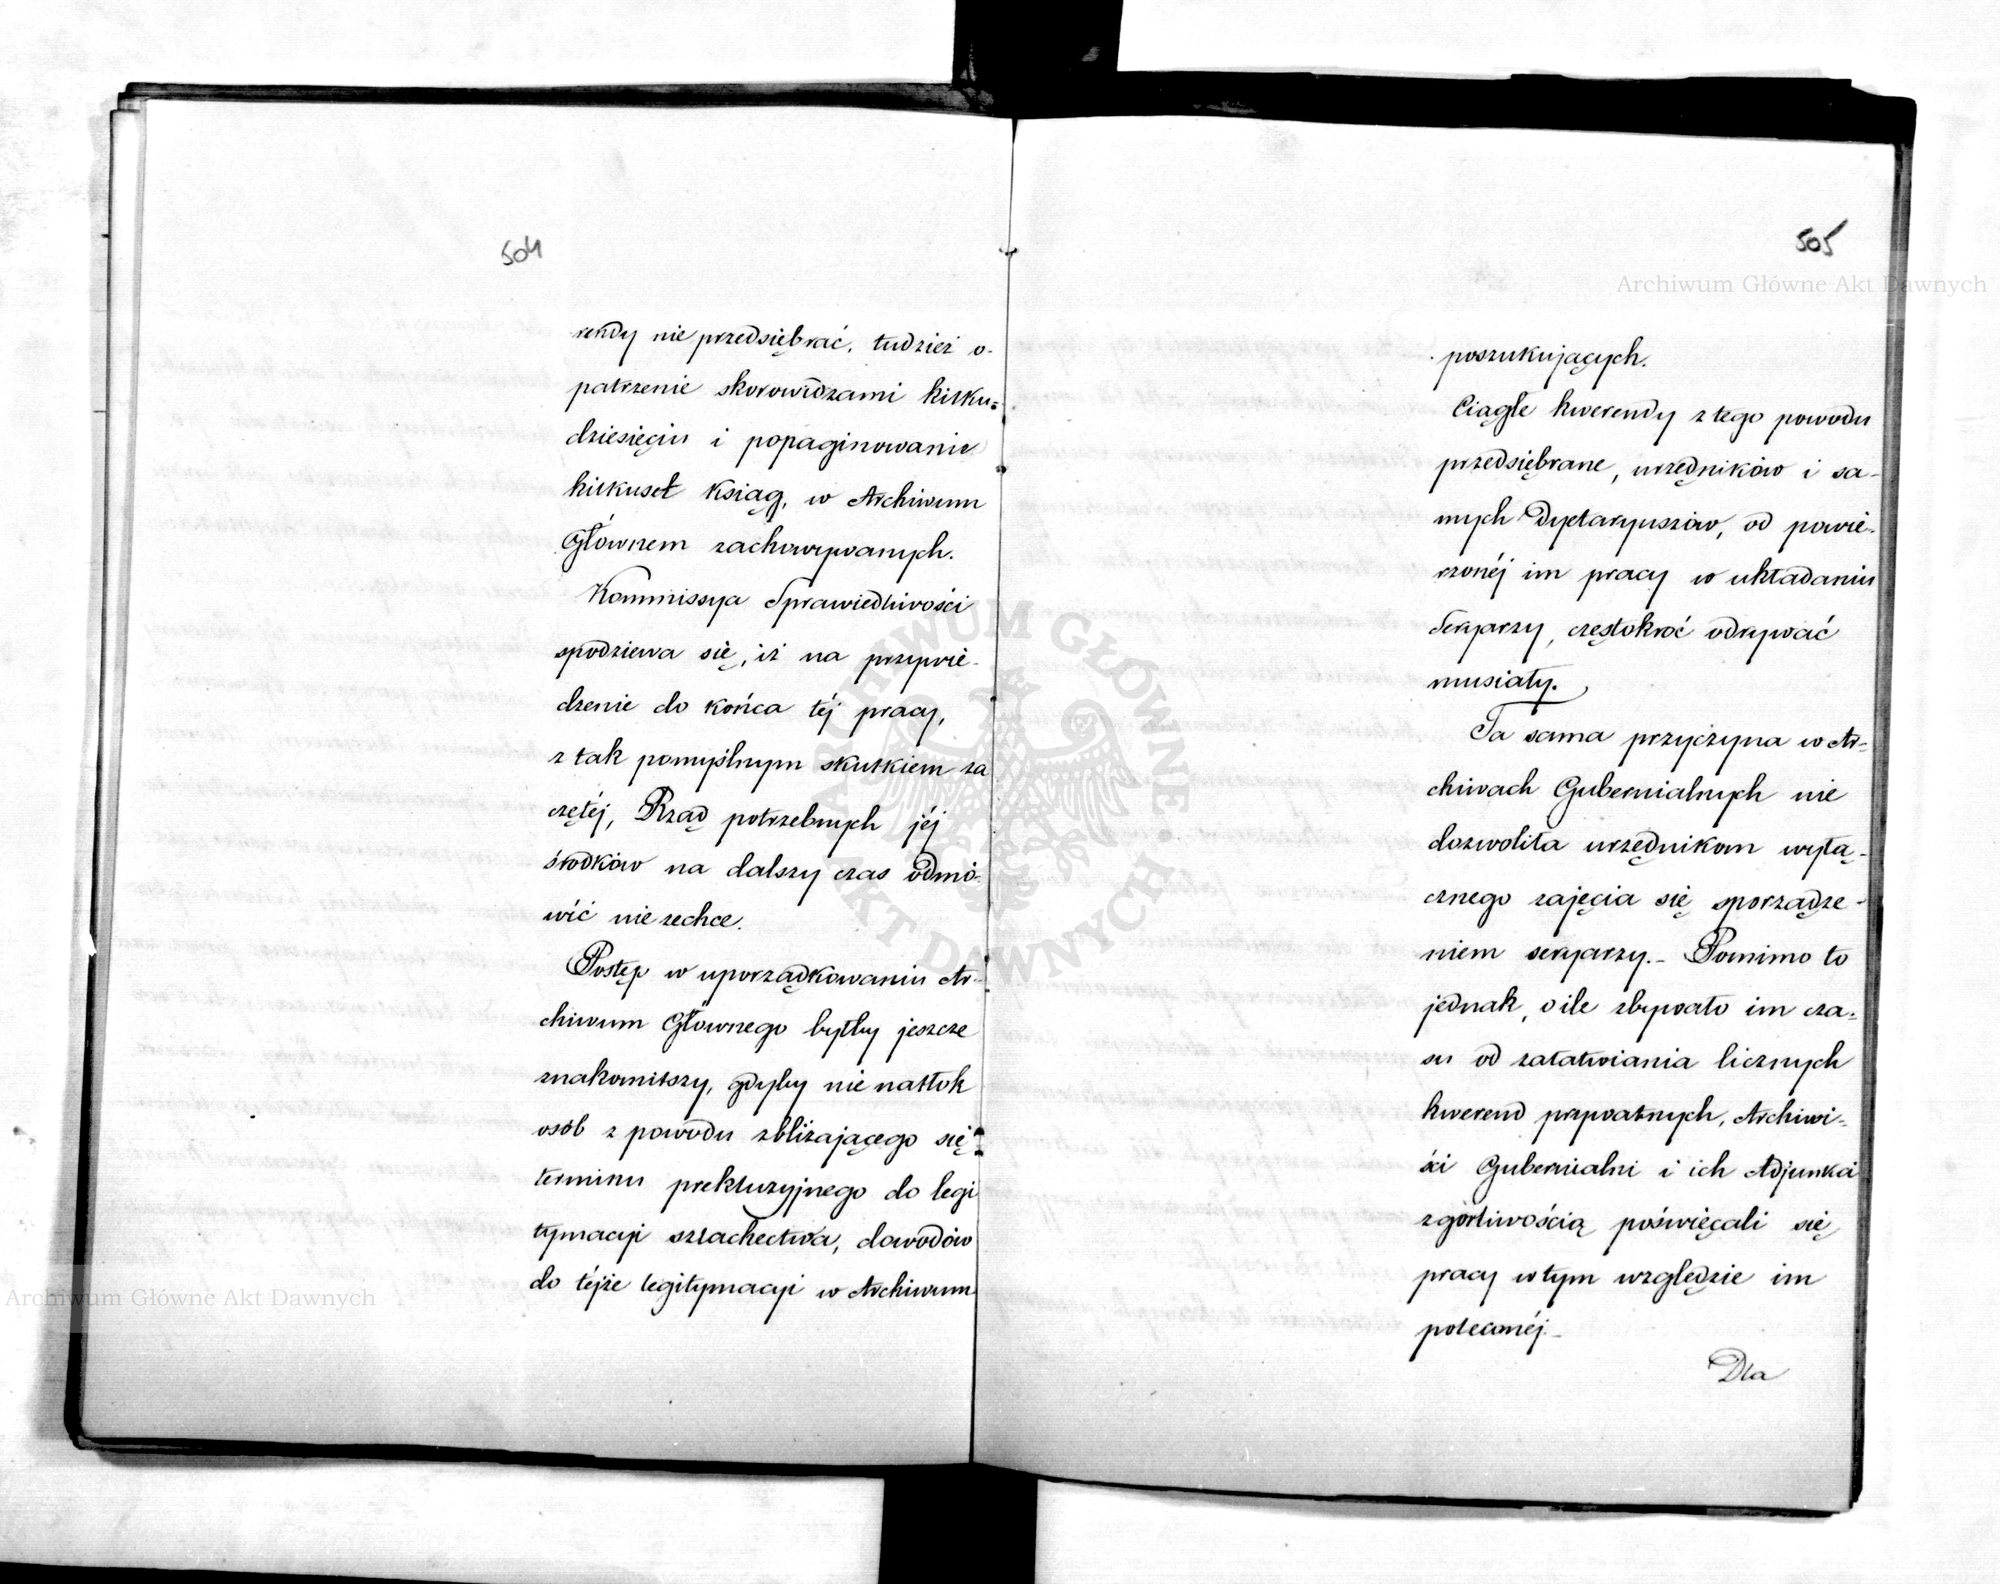 504
rendy nie przedsiębrać, tudzież o-
patrzenie skorowidzami kilku=
dziesięciu i popaginowanie
kilkuset ksiąg, w Archiwum
Głównem zachowywanych.
Kommissya Sprawiedliwości
spodziewa się, iż na przywie-
dzenie do końca téj pracy,
z tak pomyślnym skutkiem za
czętéj, Rząd potrzebnych jéj
środków na dalszy czas odmó-
wić nie zechce.
Postęp w uporządkowaniu Ar-
chiwum Głównego byłby jeszcze
znakomitszy, gdyby nie natłok
osób z powodu zbliżającego się
terminu prekluzyjnego do legi
tymacyi szlachectwa, dowodów
do téjże legitymacyi w Archiwum
505
poszukujących.
Ciągłe kwerendy z tego powodu
przedsiębrane, urzędników i sa-
mych Dyetaryuszów, od powie-
rzonéj im pracy w układaniu
Seryarzy, częstokroć odrywać
musiały.
Ta sama przyczyna w Ar=
chiwach Gubernialnych nie
dozwoliła urzędnikom wyłą-
cznego zajęcia się sporządze-
niem seryarzy.- Pomimo to
jednak, o ile zbywało im cza-
su od załatwiania licznych
kwerend prywatnych, Archiwi=
ści Gubernialni i ich Adjunkci
z gorliwością poświęcali się
pracy w tym względzie im
poleconéj.-
Dla
Archiwum Główne Akt Dawnych
Archiwum Główne Akt Dawnych
ARCHIWUM GŁÓWNE • AKT DAWNYCH •